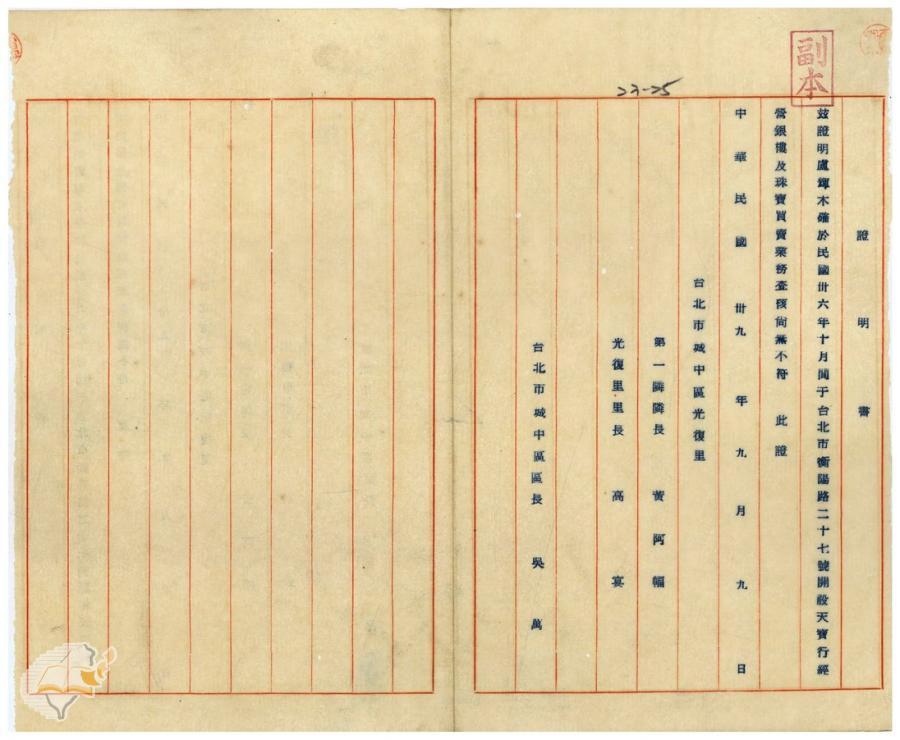 副本
23-25
證明書
茲證明盧輝木確於民國卅六年十月間于台北市衡陽路二十七號開設天寶行經
營銀樓及珠寶買賣業務查核尚無不符 此證
中華民國卅九年九月九日
台北市城中區光復里
第一鄰鄰長 黃阿幅
光復里里長 高宴
台北市城中區區長 吳萬